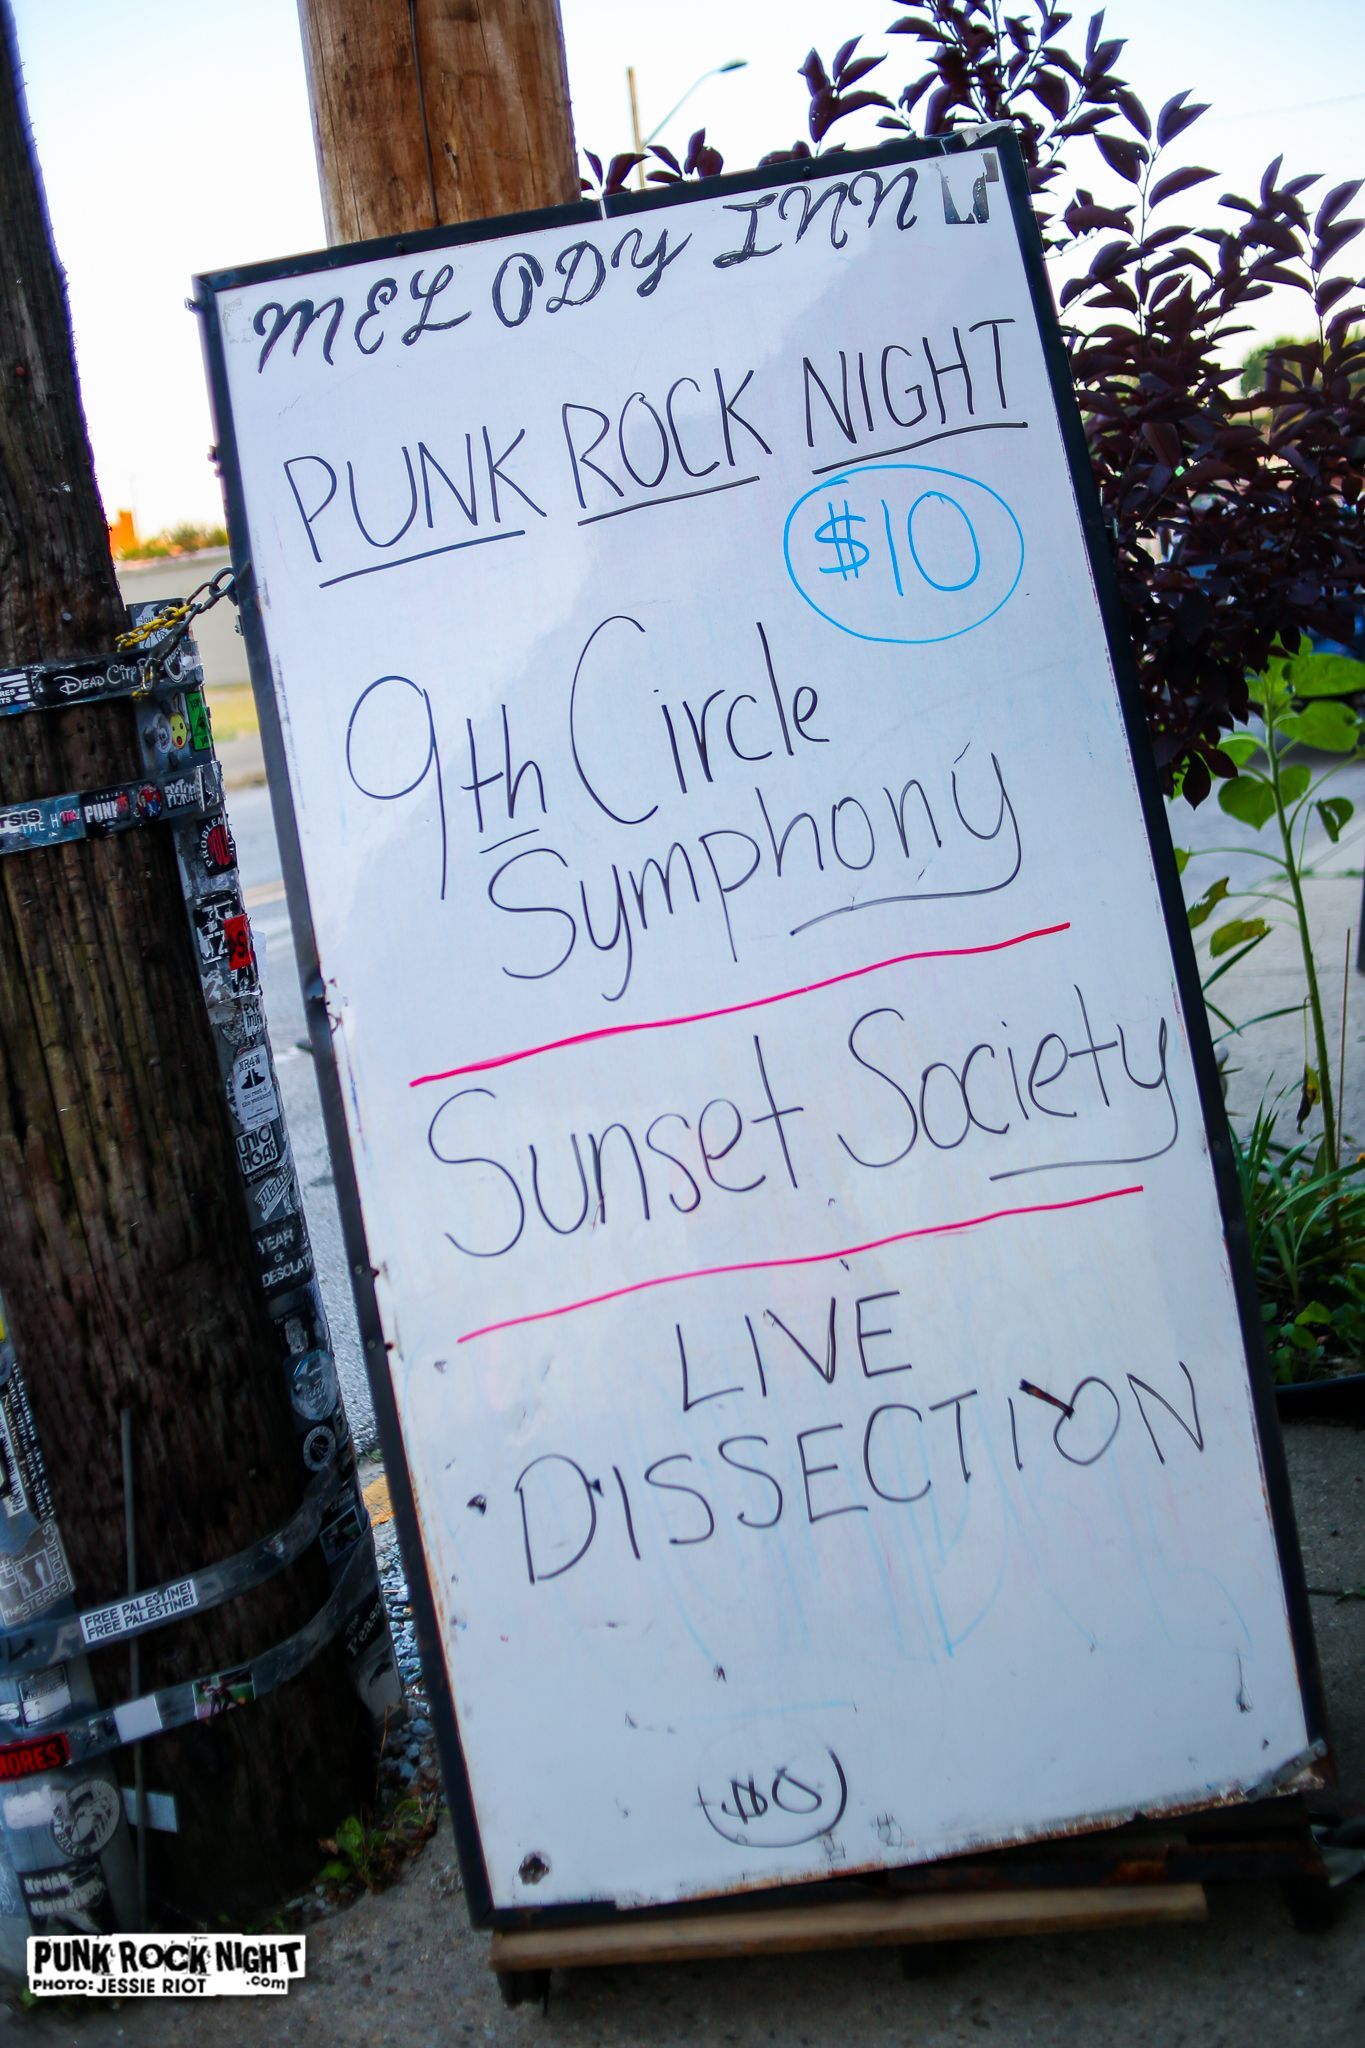 MELODY INN
PUNK ROCK NIGHT
$10
9th Circle
Symphony
Sunset Society
LIVE
DISSECTION
DEAD CITY
PUNK
PROBLEM
UNIO
NGAS
YEAR
OF
DESOLAT
FREE PALESTINE!
FREE PALESTINE!
MORES
PUNK ROCK NIGHT
.com
PHOTO: JESSIE RIOT